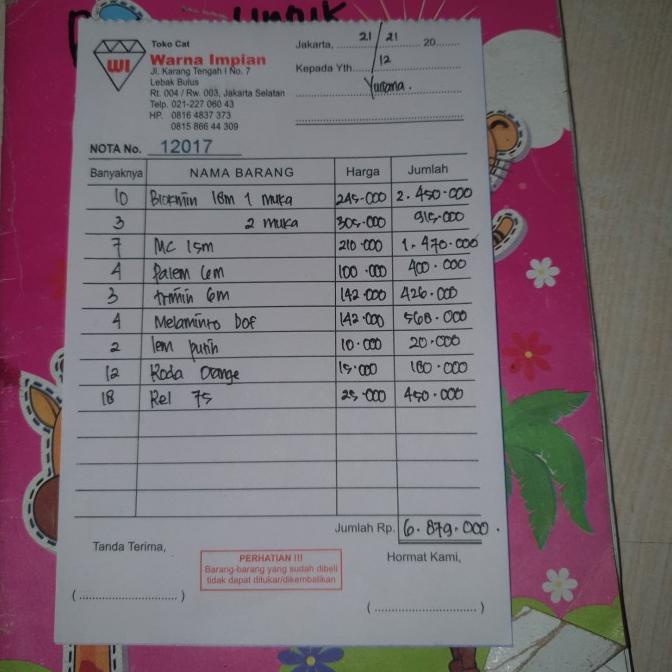 UNTUK
Toko Cat
WI
Warna Impian
Jl. Karang Tengah I No. 7
Lebak Bulus
Rt. 004 / Rw. 003, Jakarta Selatan
Telp. 021-227 060 43
HP. 0816 4837 373
0815 866 44 309
Jakarta, 21/12 21 20
Kepada Yth.
NOTA No. 12017
Banyaknya NAMA BARANG Harga Jumlah
10 18m 1 muka 245.000 2.450.000
3 2 muka 305.000 915.000
7 MC 15m 210.000 1.470.000
4 Palem 6m 100.000 400.000
3 6m 142.000 426.000
4 Melaminto Dof 142.000 568.000
2 lem putih 10.000 20.000
12 Roda Orange 15.000 180.000
18 Rel 75 25.000 450.000
Jumlah Rp. 6.879.000.
Tanda Terima,
PERHATIAN !!!
Barang-barang yang sudah dibeli
tidak dapat ditukar/dikembalikan
Hormat Kami,